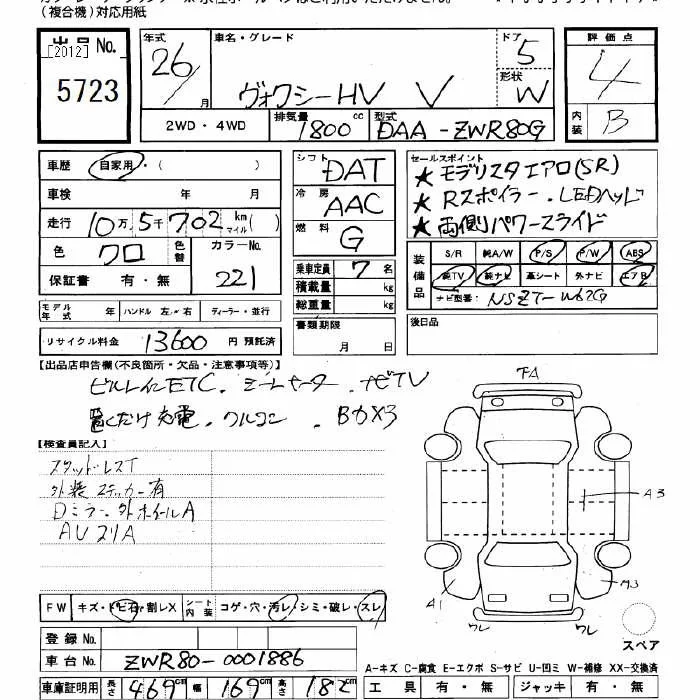 (複合機)対応用紙
出品 No.
[2012]
5723
年式 26/ 月
車名・グレード
ヴォクシーHV V
ドア 5
形状 W
評価点 4
内装 B
2WD・4WD
排気量 1800 cc
型式 DAA-ZWR80G
車歴 自家用・( )
車検 年 月
走行 10万5千702 km マイル( )
色 クロ 色替 カラーNo. 221
保証書 有・無
モデル年式 年 ハンドル 左・右 ディーラー・並行
リサイクル料金 13600 円 預託済
シフト DAT
冷房 AAC
燃料 G
乗車定員 7 名
積載量 kg
総重量 kg
書類期限 月 日
セールスポイント
★モデリスタエアロ(SR)
★Rスポイラー・LEDヘッド
★両側パワースライド
装備品 S/R 純A/W P/S P/W ABS
純TV 純ナビ 革シート 外ナビ エアB
ナビ型番: NSZT-W62G
後日品
【出品店申告欄(不良箇所・欠品・注意事項等)】
ビルトインETC・シートヒーター・ナビTV
置くだけ充電・クルコン・Bカメラ
【検査員記入】
スタッドレスT
外装ステッカー有
Dミラー・外ホイールA
FA
A3
A1
M3
ワレ
ワレ
スペア
FW キズ・トビ石・割レX シート内装 コゲ・穴・汚レ・シミ・破レ・スレ
登録 No.
車台 No. ZWR80-0001886
車庫証明用 長さ 469 cm 幅 169 cm 高さ 182 cm
A-キズ C-腐食 E-エクボ S-サビ U-凹ミ W-補修 XX-交換済
工具 有・無 ジャッキ 有・無